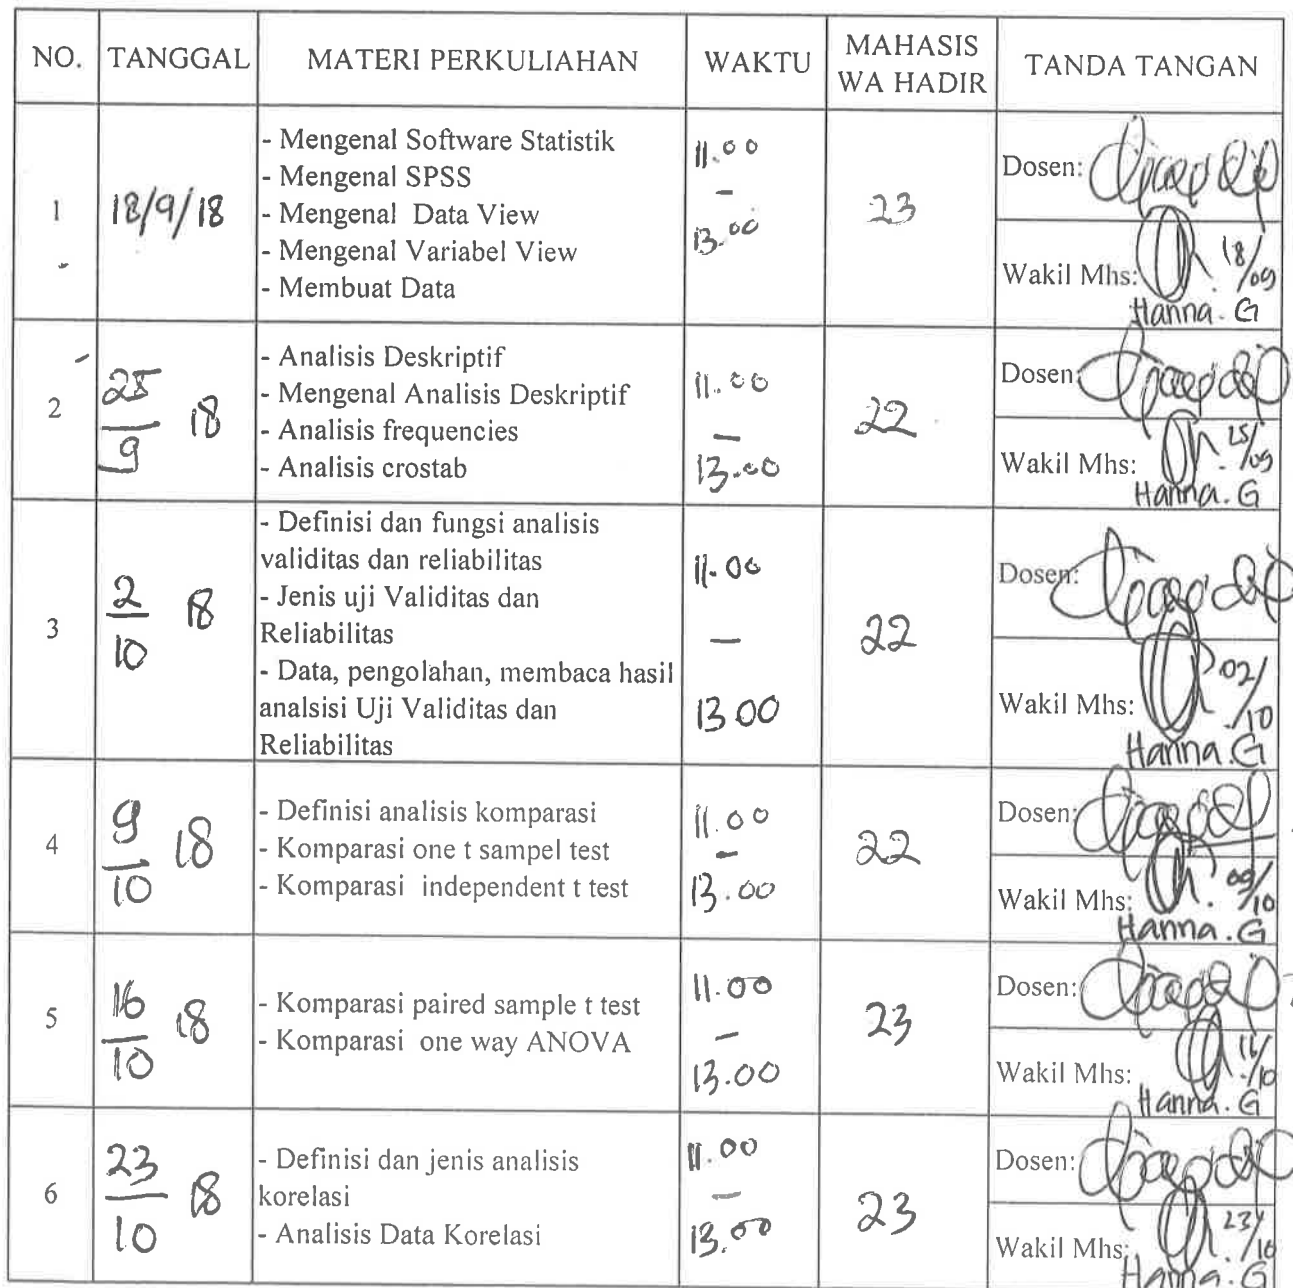 NO. TANGGAL MATERI PERKULIAHAN WAKTU MAHASIS WA HADIR TANDA TANGAN
1 18/9/18
- Mengenal Software Statistik
- Mengenal SPSS
- Mengenal Data View
- Mengenal Variabel View
- Membuat Data
11.00
-
13.00
23
Dosen:
Wakil Mhs: 18/09
Hanna. G
2 25/9 18
- Analisis Deskriptif
- Mengenal Analisis Deskriptif
- Analisis frequencies
- Analisis crostab
11.00
-
13.00
22
Dosen:
Wakil Mhs: 25/09
Hanna. G
3 2/10 18
- Definisi dan fungsi analisis
validitas dan reliabilitas
- Jenis uji Validitas dan
Reliabilitas
- Data, pengolahan, membaca hasil
analsisi Uji Validitas dan
Reliabilitas
11.00
-
13.00
22
Dosen:
Wakil Mhs: 02/10
Hanna. G
4 9/10 18
- Definisi analisis komparasi
- Komparasi one t sampel test
- Komparasi independent t test
11.00
-
13.00
22
Dosen:
Wakil Mhs: 09/10
Hanna. G
5 16/10 18
- Komparasi paired sample t test
- Komparasi one way ANOVA
11.00
-
13.00
23
Dosen:
Wakil Mhs: 16/10
Hanna. G
6 23/10 18
- Definisi dan jenis analisis
korelasi
- Analisis Data Korelasi
11.00
-
13.00
23
Dosen:
Wakil Mhs: 23/10
Hanna. G